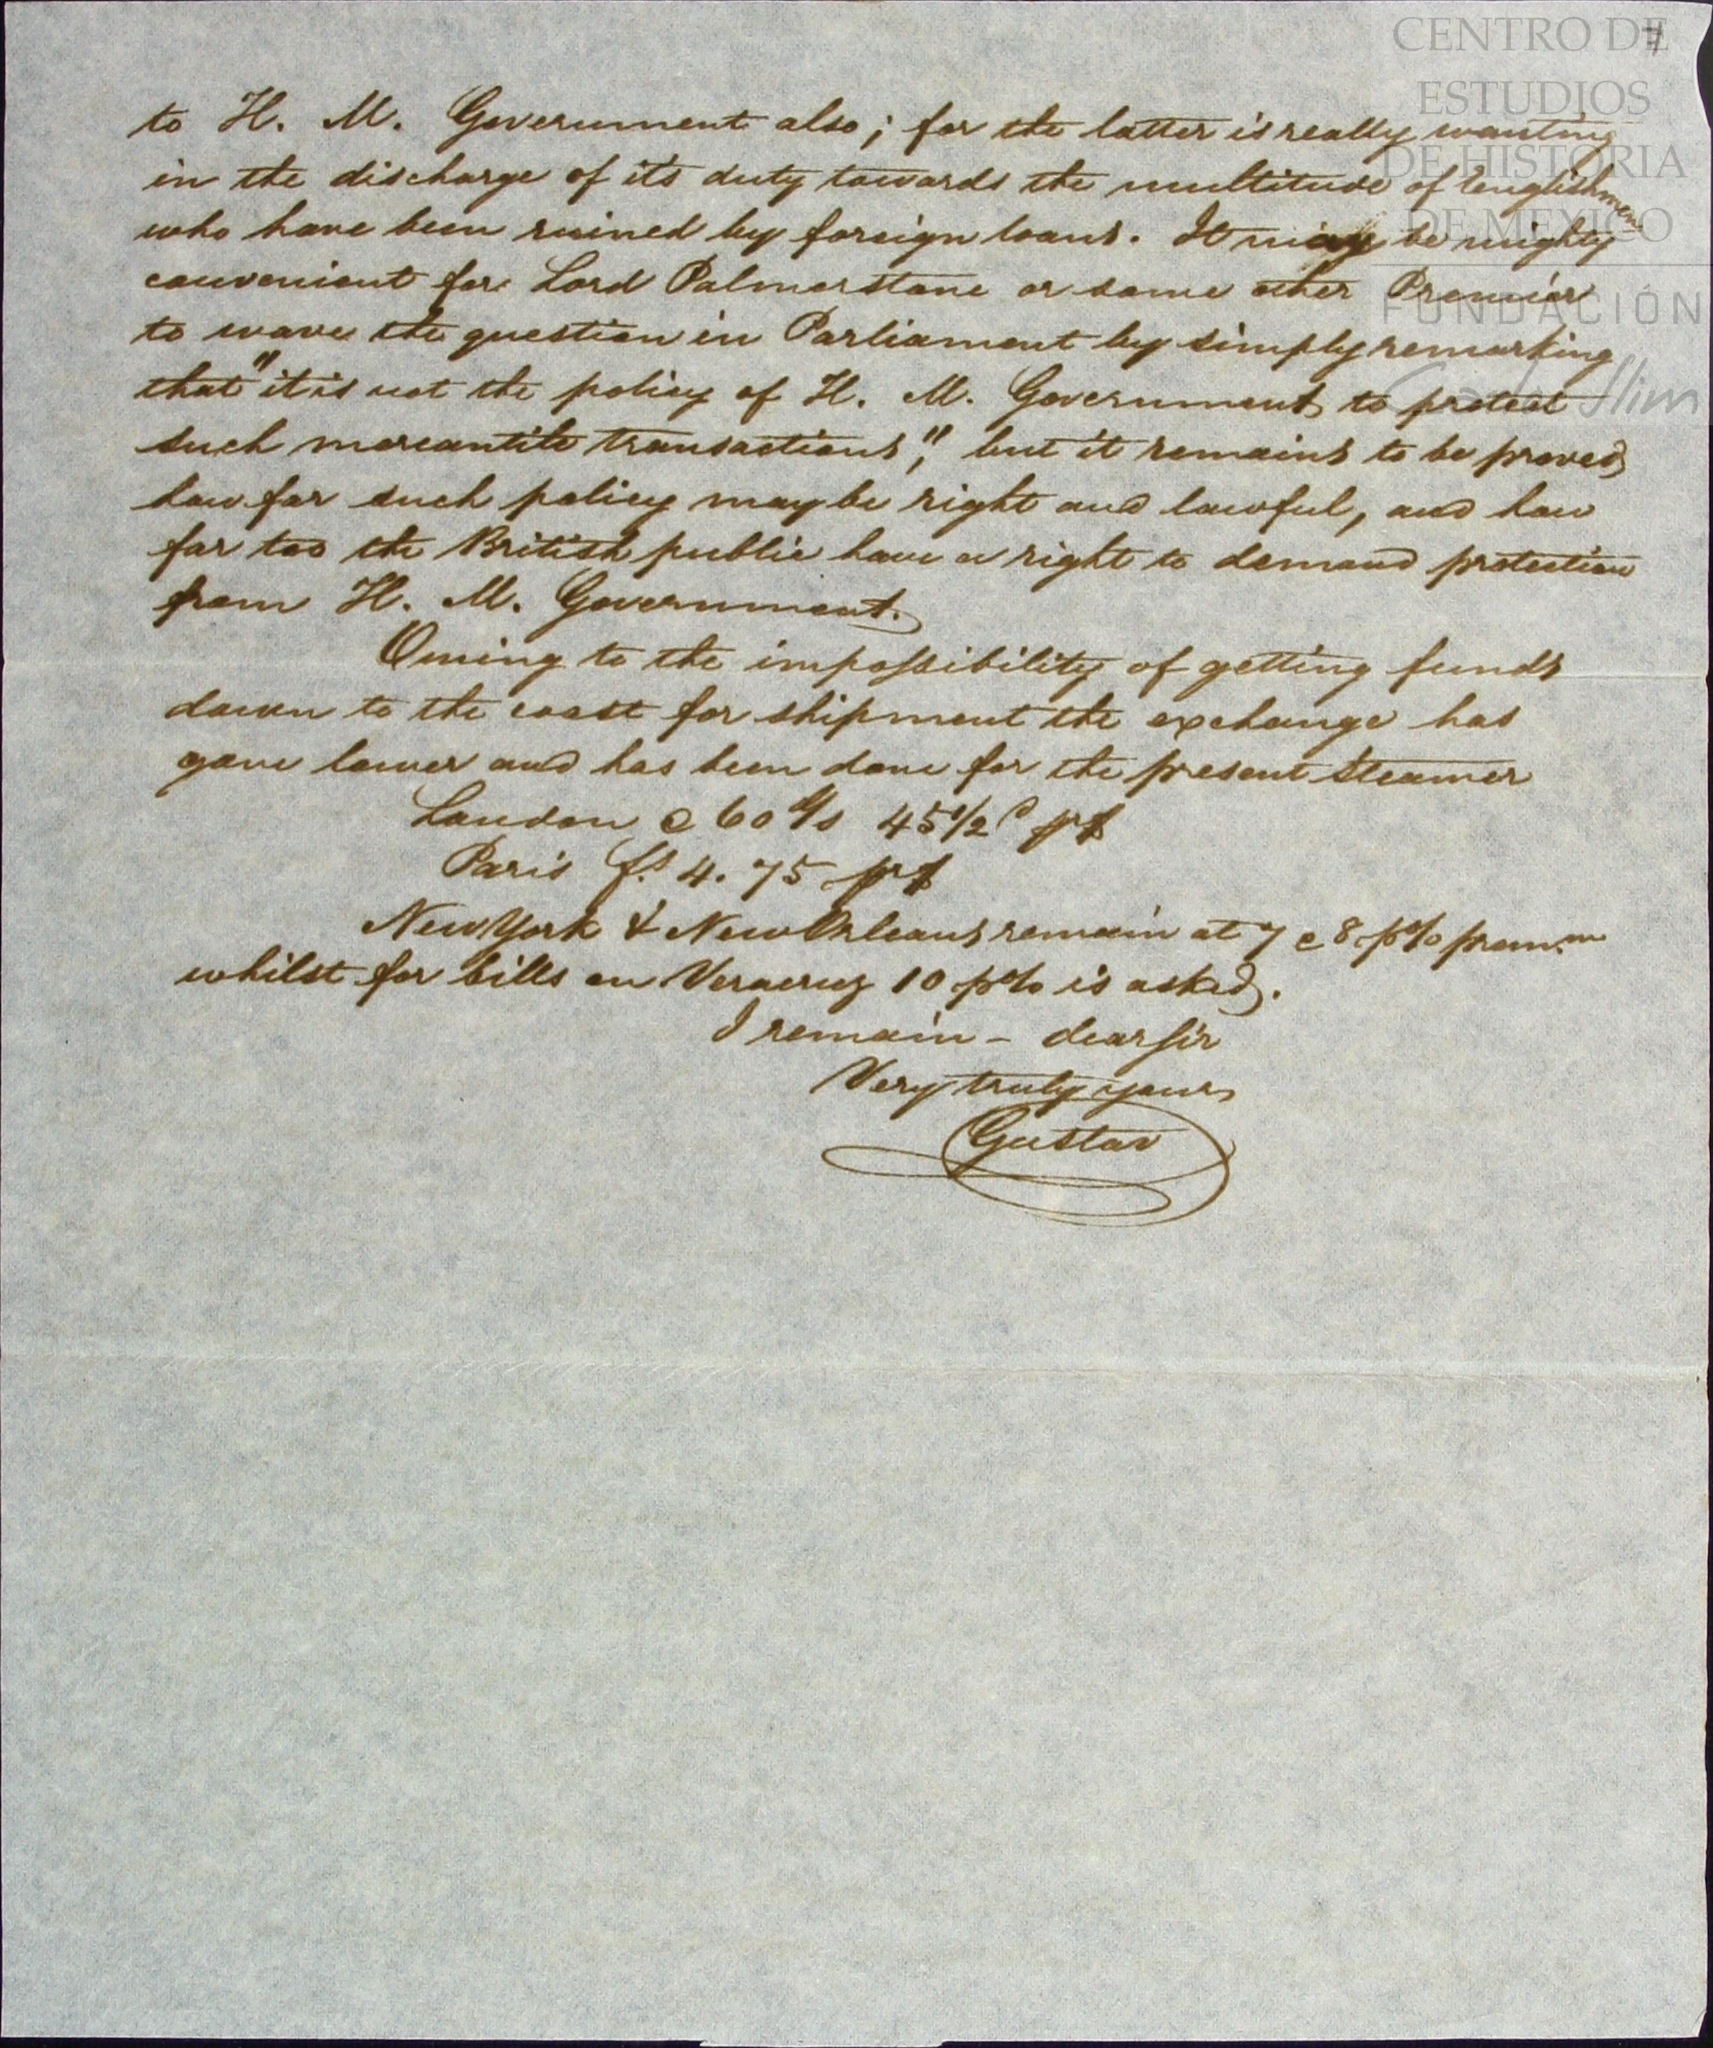 CENTRO DE
ESTUDIOS
DE HISTORIA
DE MEXICO
FUNDACIÓN
Carlos Slim
to H. M. Government also; for the latter is really wanting
in the discharge of its duty towards the multitude of Englishmen
who have been ruined by foreign loans. It may be mighty
convenient for Lord Palmerstone or some other Premier
to wave the question in Parliament by simply remarking
that "it is not the policy of H. M. Government to protect
such mercantile transactions," but it remains to be proved
how far such policy may be right and lawful, and how
far too the British public have a right to demand protection
from H. M. Government.
Owing to the impossibility of getting funds
down to the coast for shipment the exchange has
gone lower and has been done for the present Steamer
London @ 60 d/s 45 1/2 d pr $
Paris fs. 4.75 pr $
New York & New Orleans remain at 7 @ 8 p% prem.m
whilst for bills on Veracruz 10 p% is asked.
I remain - dear Sir
Very truly yours
Gustav